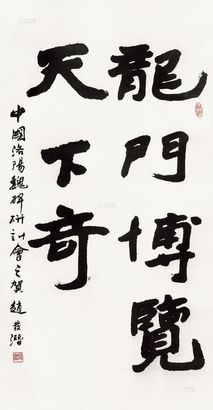 龍門博覽
天下奇
中國洛陽魏碑研討會之賀趙